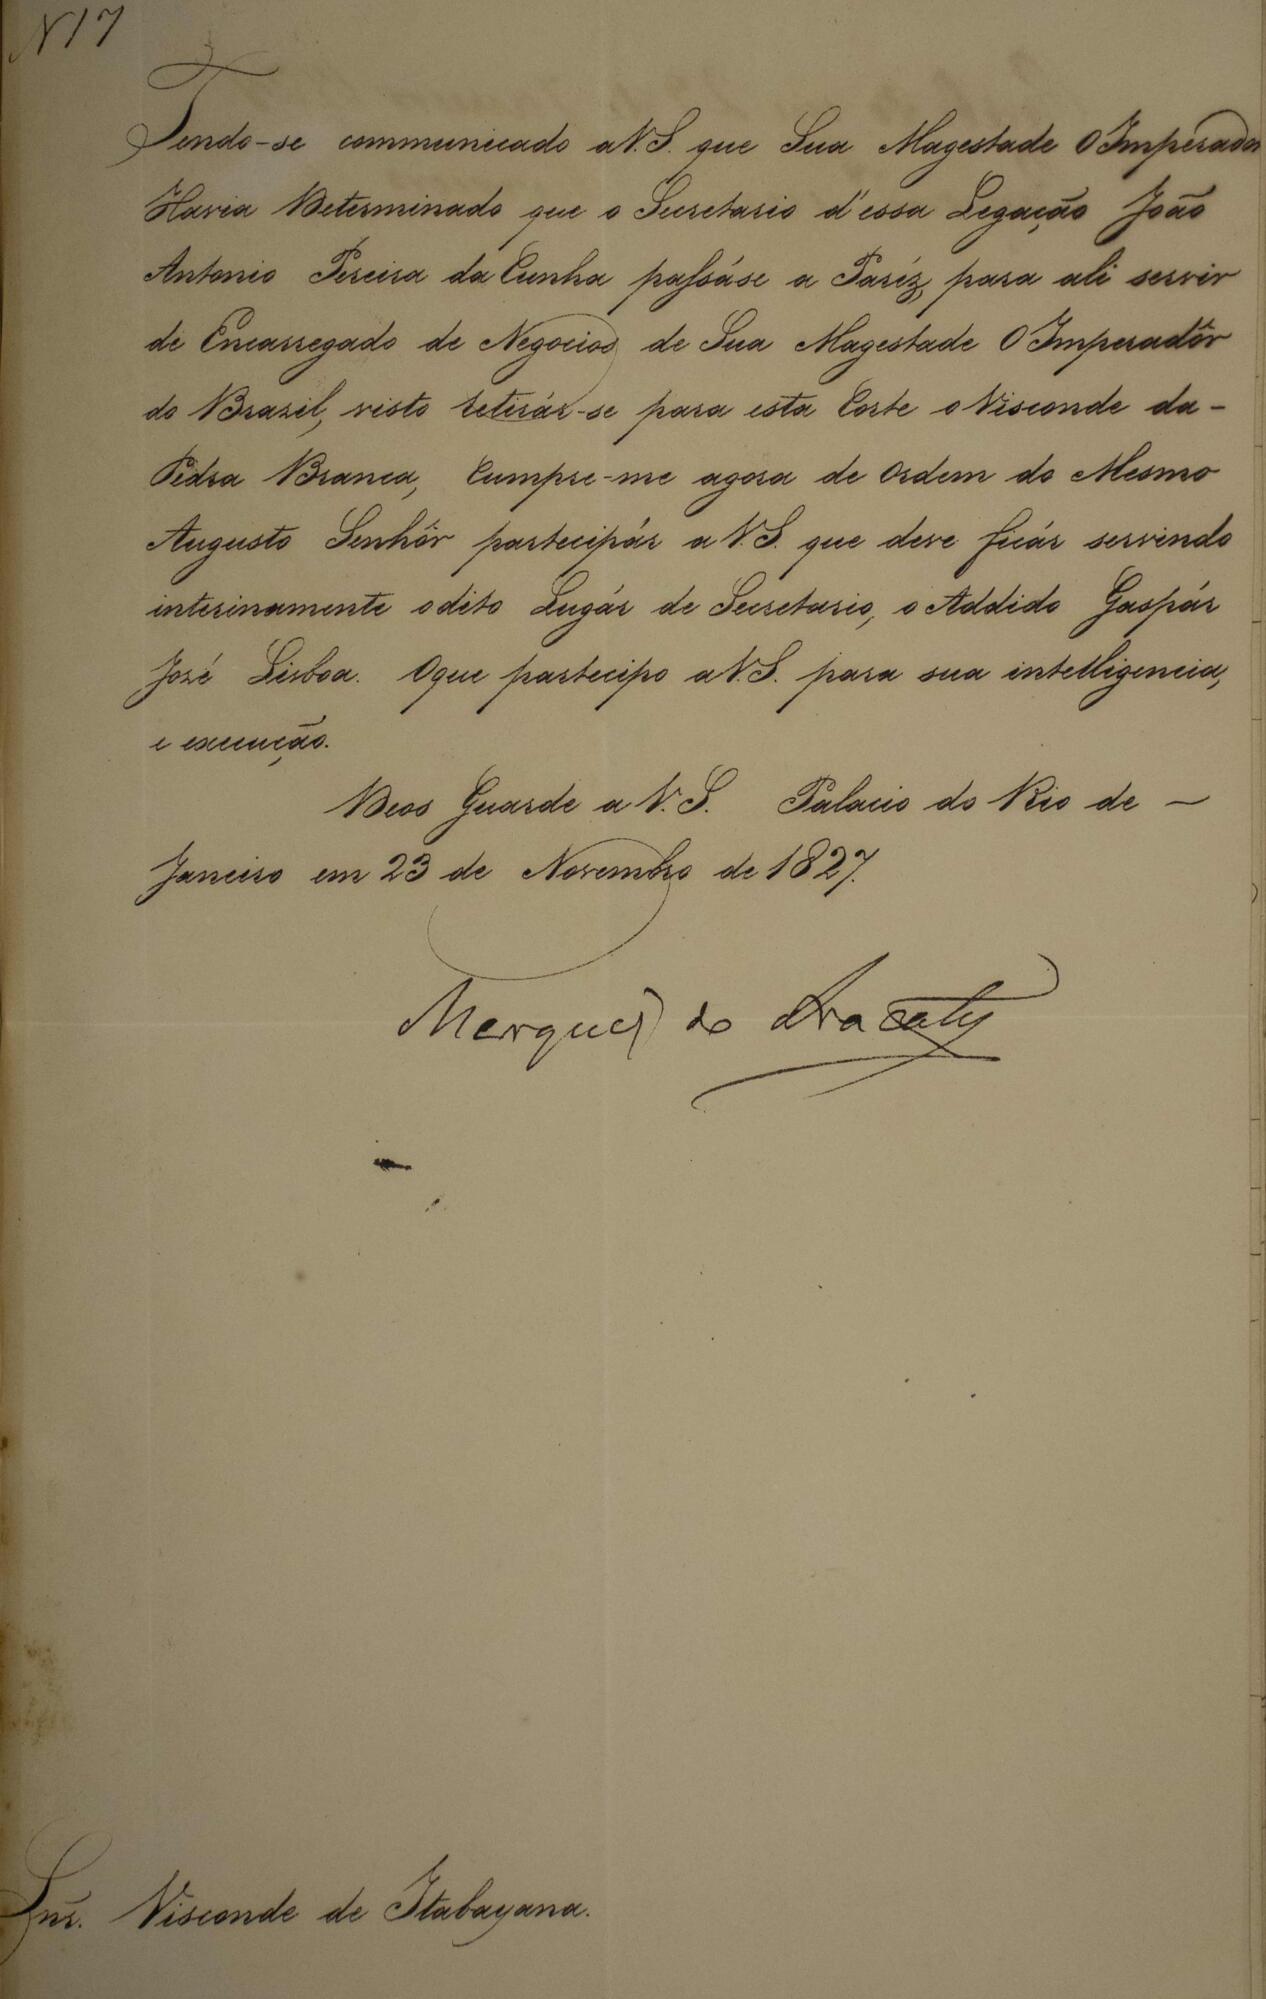 N 17
Tendo-se communicado a V.S. que Sua Magestade O Imperador
Havia Determinado que o Secretario d'essa Legação João
Antonio Pereira da Cunha passáse a Paríz, para ali servir
de Encarregado de Negocios de Sua Magestade O Imperadôr
do Brazil, visto retirár-se para esta Corte o Visconde da-
Pedra Branca, Cumpre-me agora de Ordem do Mesmo
Augusto Senhôr partecipár a V.S. que deve ficár servindo
interinamente o dito Lugár de Secretario, o Addido Gaspár
José Lisboa. O que partecipo a V.S. para sua intelligencia,
e execução.
Deos Guarde a V.S. Palacio do Rio de -
Janeiro em 23 de Novembro de 1827.
Marquez do Aracaty
Snr. Visconde de Itabayana.